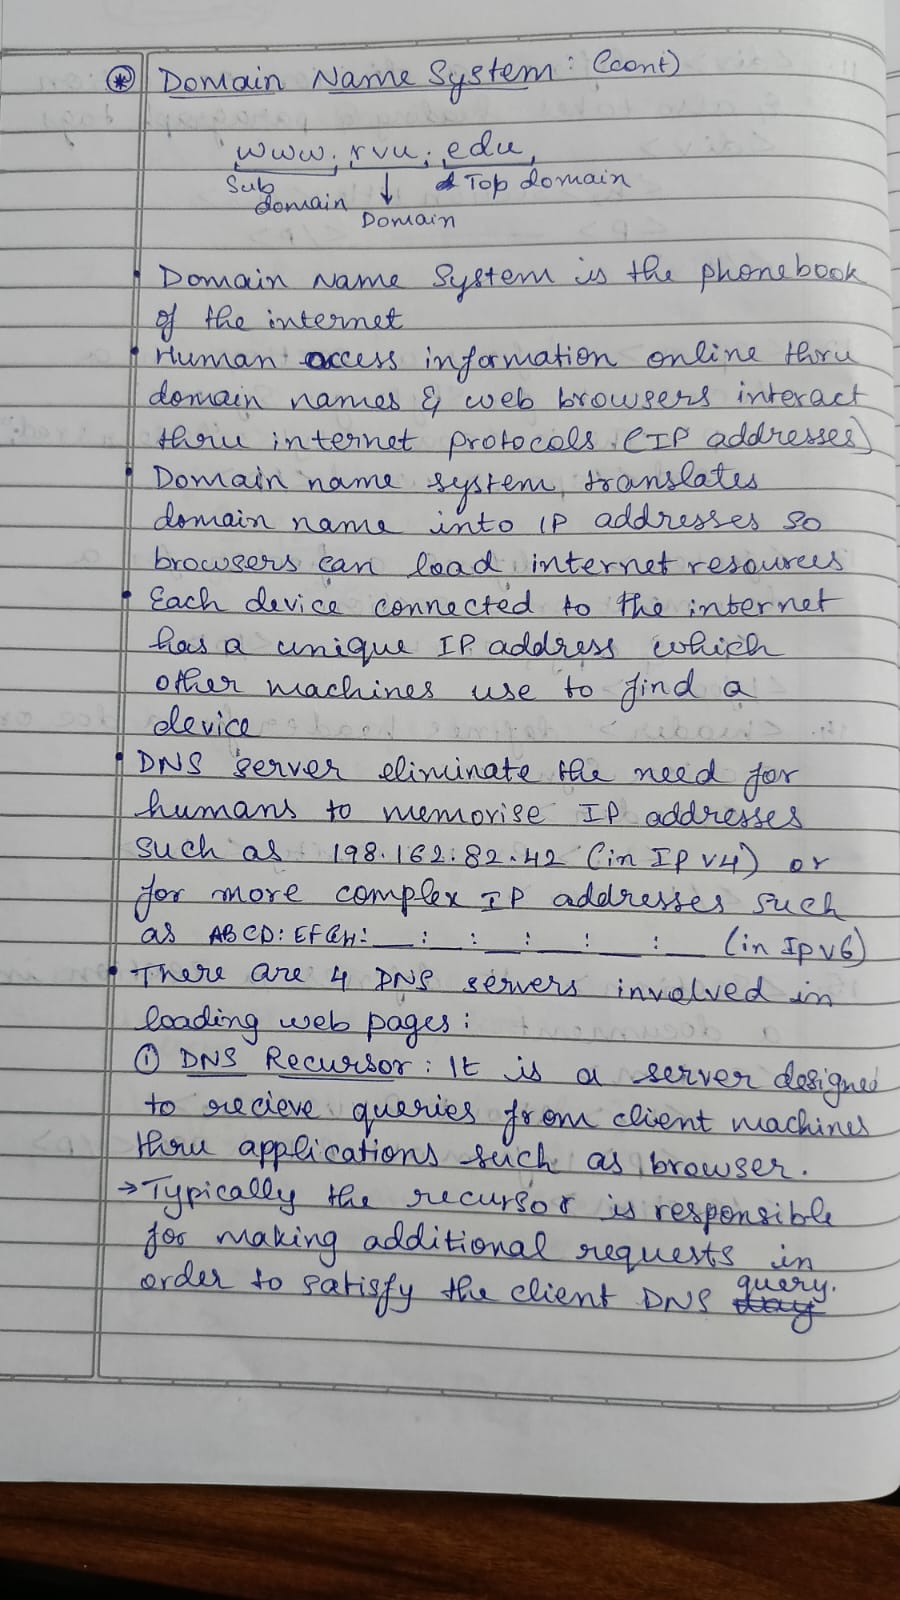 * Domain Name System: (cont)
www. rvu. edu,
Sub domain
Domain
Top domain
• Domain Name System is the phonebook
of the internet
• Human access information online thru
domain names & web browsers interact
thru internet protocols (IP addresses)
• Domain name system, translates
domain name into IP addresses so
browsers can load internet resources
• Each device connected to the internet
has a unique IP address which
other machines use to find a
device
• DNS server eliminate the need for
humans to memorise IP addresses
such as 198.162.82.42 (in IP v4) or
for more complex IP addresses such
as ABCD: EFGH: __ : __ : __ : __ : __ : __ (in Ipv6)
• There are 4 DNS servers involved in
loading web pages:
① DNS Recursor: It is a server designed
to recieve queries from client machines
thru applications such as browser.
→ Typically the recursor is responsible
for making additional requests in
order to satisfy the client DNS query.